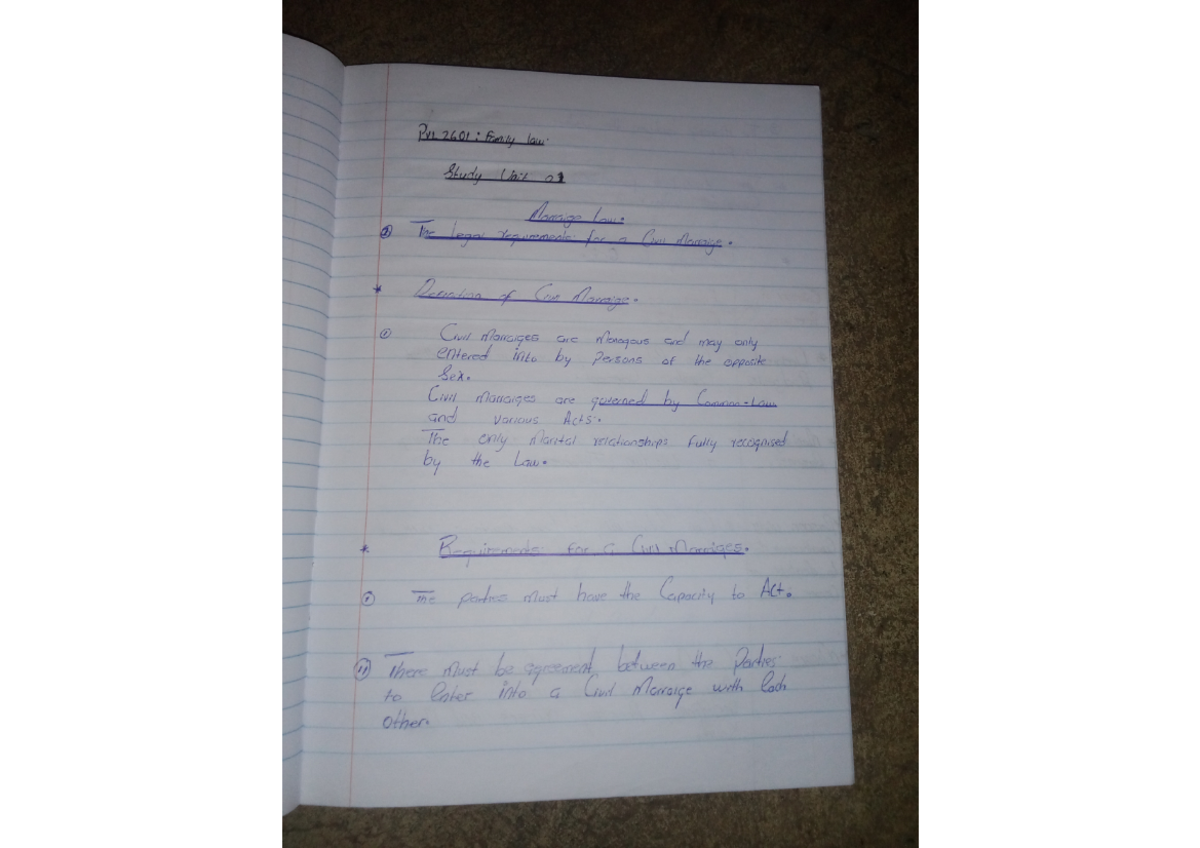 PVL 2601 : Family law.
Study Unit 03
Marraige Law.
The Legal requirements for a Civil Marraige.
* Definition of Civil Marraige.
① Civil Marraiges are Monogous and may only
entered into by Persons of the opposite
Sex.
Civil Marraiges are governed by Common-Law
and various Acts.
The only Marital relationships fully recognised
by the Law.
* Requirements for a Civil Marraiges.
① The parties must have the Capacity to Act.
⑪ There must be agreement between the Parties
to Enter into a Civil Marraige with Each
other.